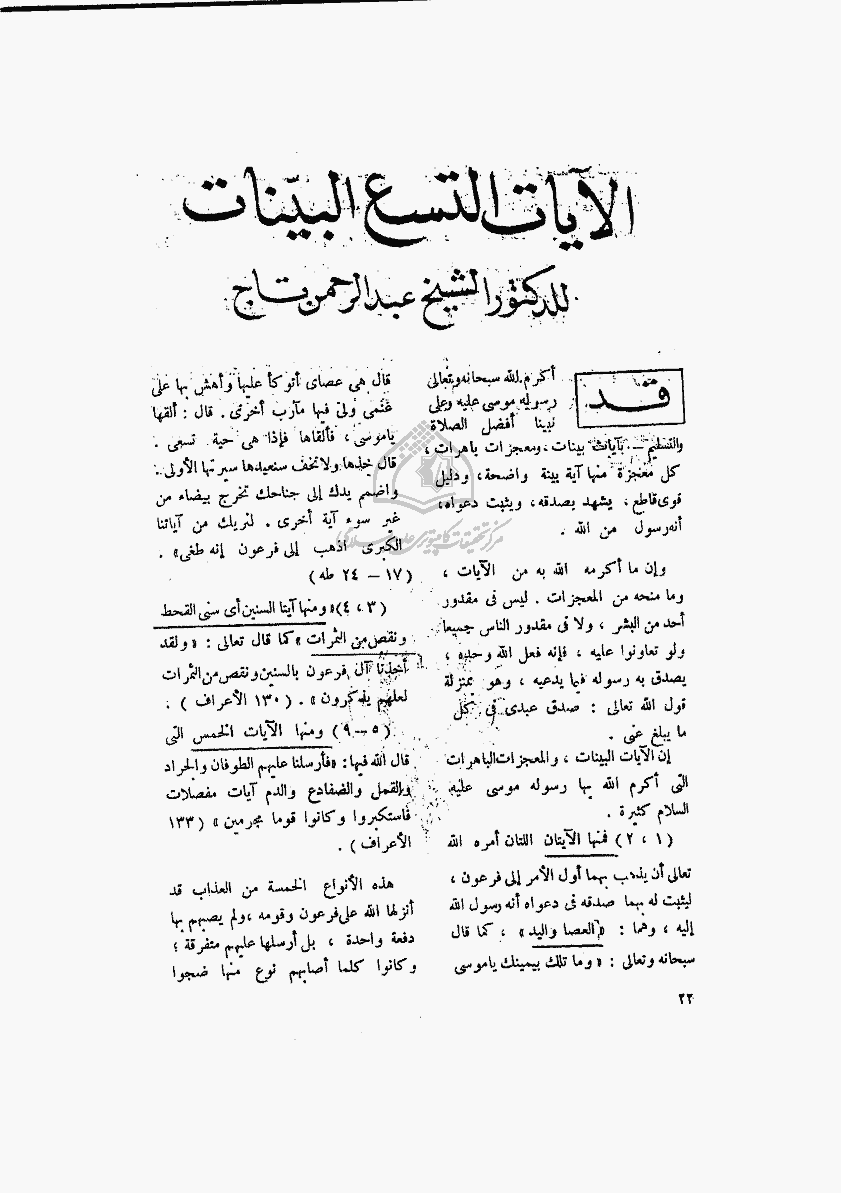 الآيات التسع البيّنات
للدكتور الشيخ عبد الرحمن تاج
قد
أكرم الله سبحانه وتعالى
رسوله موسى عليه وعلى
نبينا أفضل الصلاة
والتسليم — بآيات بينات، ومعجزات باهرات،
كل معجزة منها آية بينة واضحة، ودليل
قوى قاطع، يشهد بصدقه، ويثبت دعواه،
أنه رسول من الله .
وإن ما أكرمه الله به من الآيات ،
وما منحه من المعجزات . ليس فى مقدور
أحد من البشر ، ولا فى مقدور الناس جميعا
ولو تعاونوا عليه ، فإنه فعل الله وحده ،
يصدق به رسوله فيما يدعيه ، وهو بمنزلة
قول الله تعالى : صدق عبدى فى كل
ما يبلغ عنى .
إن الآيات البينات ، والمعجزات الباهرات
التى أكرم الله بها رسوله موسى عليه
السلام كثيرة .
( ١ ، ٢ ) فمنها الآيتان اللتان أمره الله
تعالى أن يذهب بهما أول الأمر إلى فرعون ،
ليثبت له بهما صدقه فى دعواه أنه رسول الله
إليه ، وهما : «العصا واليد» ، كما قال
سبحانه وتعالى : « وما تلك بيمينك ياموسى
قال هى عصاى أتوكأ عليها وأهش بها على
غنمى ولى فيها مآرب أخرى . قال : ألقها
ياموسى ، فألقاها فإذا هى حية تسعى .
قال خذها ولا تخف سنعيدها سيرتها الأولى .
واضمم يدك إلى جناحك تخرج بيضاء من
غير سوء آية أخرى . لنريك من آياتنا
الكبرى اذهب إلى فرعون إنه طغى» .
( ١٧ — ٢٤ طه )
( ٣ ، ٤ ) ومنها آيتا السنين أى سنى القحط
ونقص من الثمرات » كما قال تعالى : « ولقد
أخذنا آل فرعون بالسنين ونقص من الثمرات
لعلهم يذكرون » . ( ١٣٠ الأعراف ) .
( ٥ — ٩ ) ومنها الآيات الخمس التى
قال الله فيها : «فأرسلنا عليهم الطوفان والجراد
والقمل والضفادع والدم آيات مفصلات
فاستكبروا وكانوا قوما مجرمين » ( ١٣٣
الأعراف ) .
هذه الأنواع الخمسة من العذاب قد
أنزلها الله على فرعون وقومه ، ولم يصبهم بها
دفعة واحدة ، بل أرسلها عليهم متفرقة ؛
وكانوا كلما أصابهم نوع منها ضجوا
٢٢
مركز تحقيقات كامپيوترى علوم اسلامى